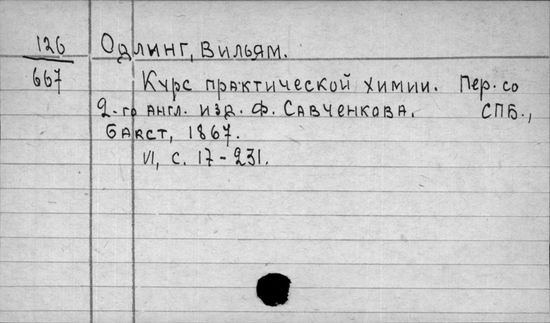 126
667
Одлинг, Вильям.
Курс практической химии. Пер. со
2-го англ. изд. Ф. Савченкова. СПБ.,
Бакст, 1867.
VI, с. 17-231.